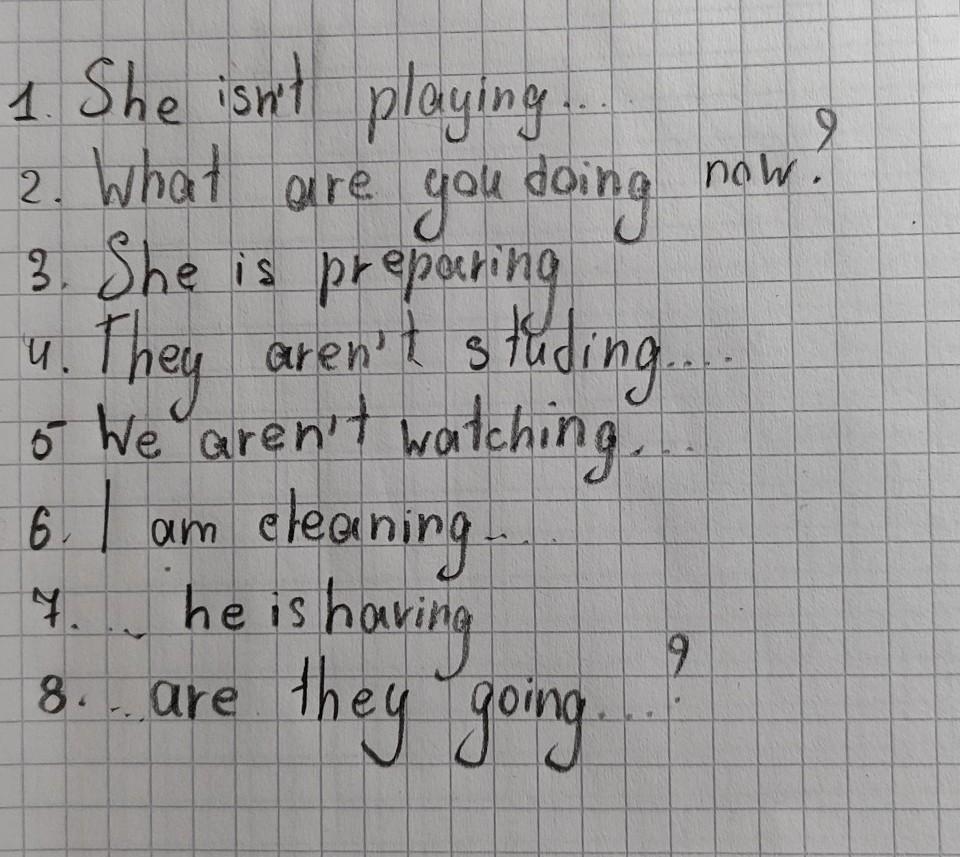 1. She isn't playing...
2. What are you doing now?
3. She is preparing
4. They aren't studing....
5 We aren't watching...
6. I am cleaning...
7. ... he is having
8. ... are they going...?